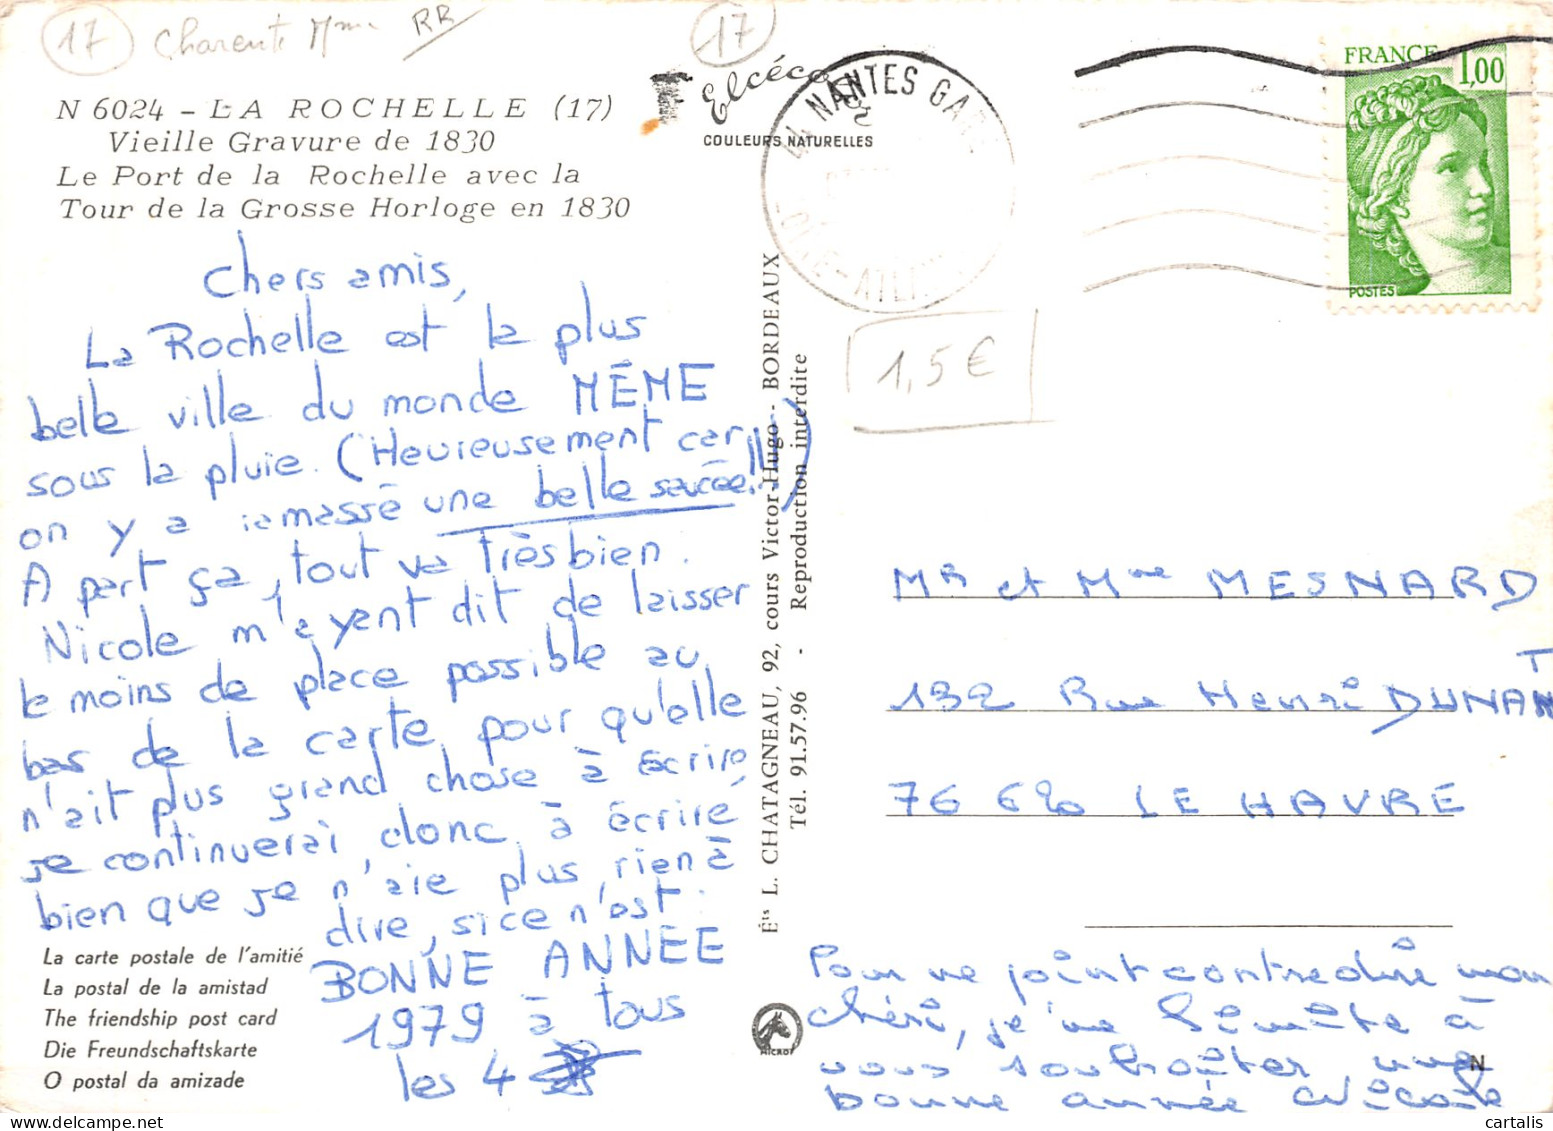 17 Charente Mme RR
17
N 6024 - LA ROCHELLE (17)
Vieille Gravure de 1830
Le Port de la Rochelle avec la
Tour de la Grosse Horloge en 1830
Elcéco
COULEURS NATURELLES
44 NANTES GARE
FRANCE 1,00
POSTES
1,5€
Chers amis,
La Rochelle est la plus
belle ville du monde MÊME
sous la pluie. (Heureusement car
on y a ramassé une belle saucée!!!)
A part ça, tout va très bien.
Nicole m'ayent dit de laisser
le moins de place possible au
bas de la carte, pour qu'elle
n'ait plus grand chose à écrire
je continuerai, donc, à écrire,
bien que je n'aie plus rien à
dire, si ce n'est :
BONNE ANNÉE
1979 à tous
les 4
La carte postale de l'amitié
La postal de la amistad
The friendship post card
Die Freundschaftskarte
O postal da amizade
Éts L. CHATAGNEAU, 92, cours Victor-Hugo - BORDEAUX
Tél. 91.57.96 - Reproduction interdite
MICRO
Mr et Mme MESNARD
132 Rue Henri DUNANT
76 620 LE HAVRE
Pour ne point contredire mon
chéri, je me limite à
vous souhaiter une
bonne année Nicole
N
cartalis